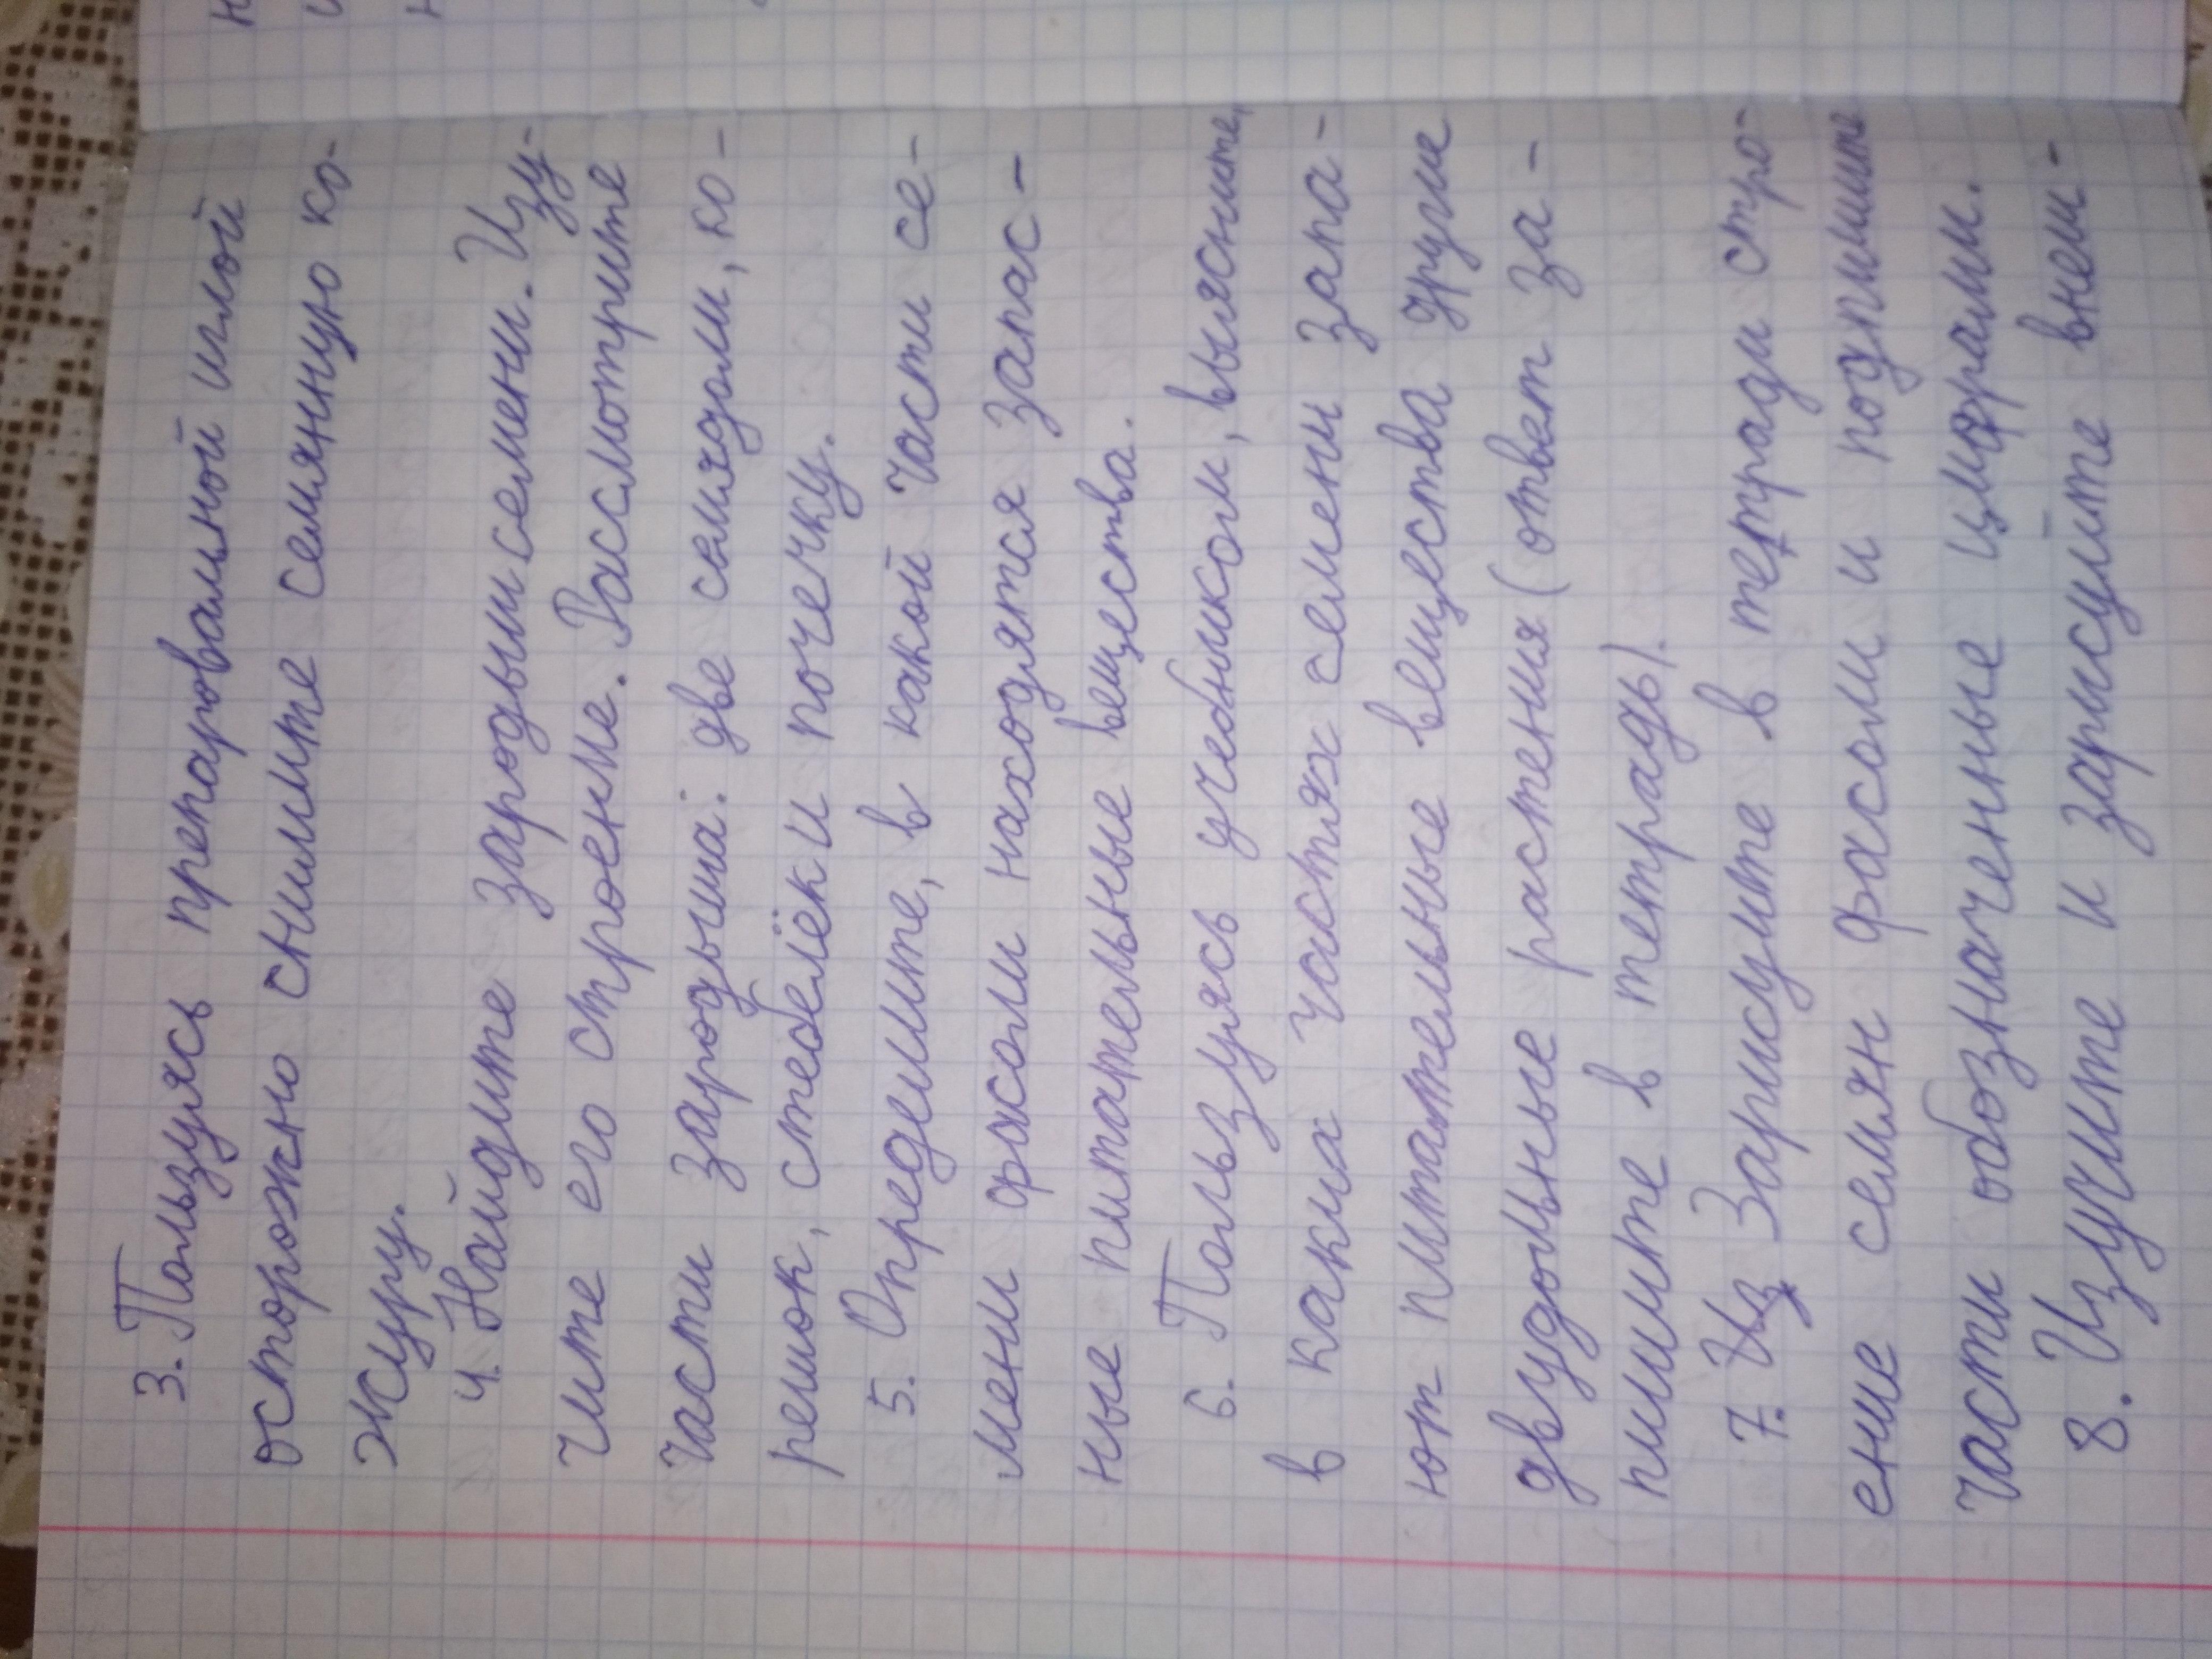 3. Пользуясь препаровальной иглой
осторожно снимите семянную ко-
журу.
4. Найдите зародыш семени. Изу-
чите его строение. Рассмотрите
части зародыша: две семядоли, ко-
решок, стебелёк и почечку.
5. Определите, в какой части се-
мени фасоли находятся запас-
ные питательные вещества.
6. Пользуясь учебником, выясните,
в каких частях семени запа-
ют питательные вещества другие
двудольные растения (ответ за-
пишите в тетрадь).
7. Из Зарисуите в тетради стро-
ение семян фасоли и подпишите
части обозначенные цифрами.
8. Изучите и зарисуйте внеш-